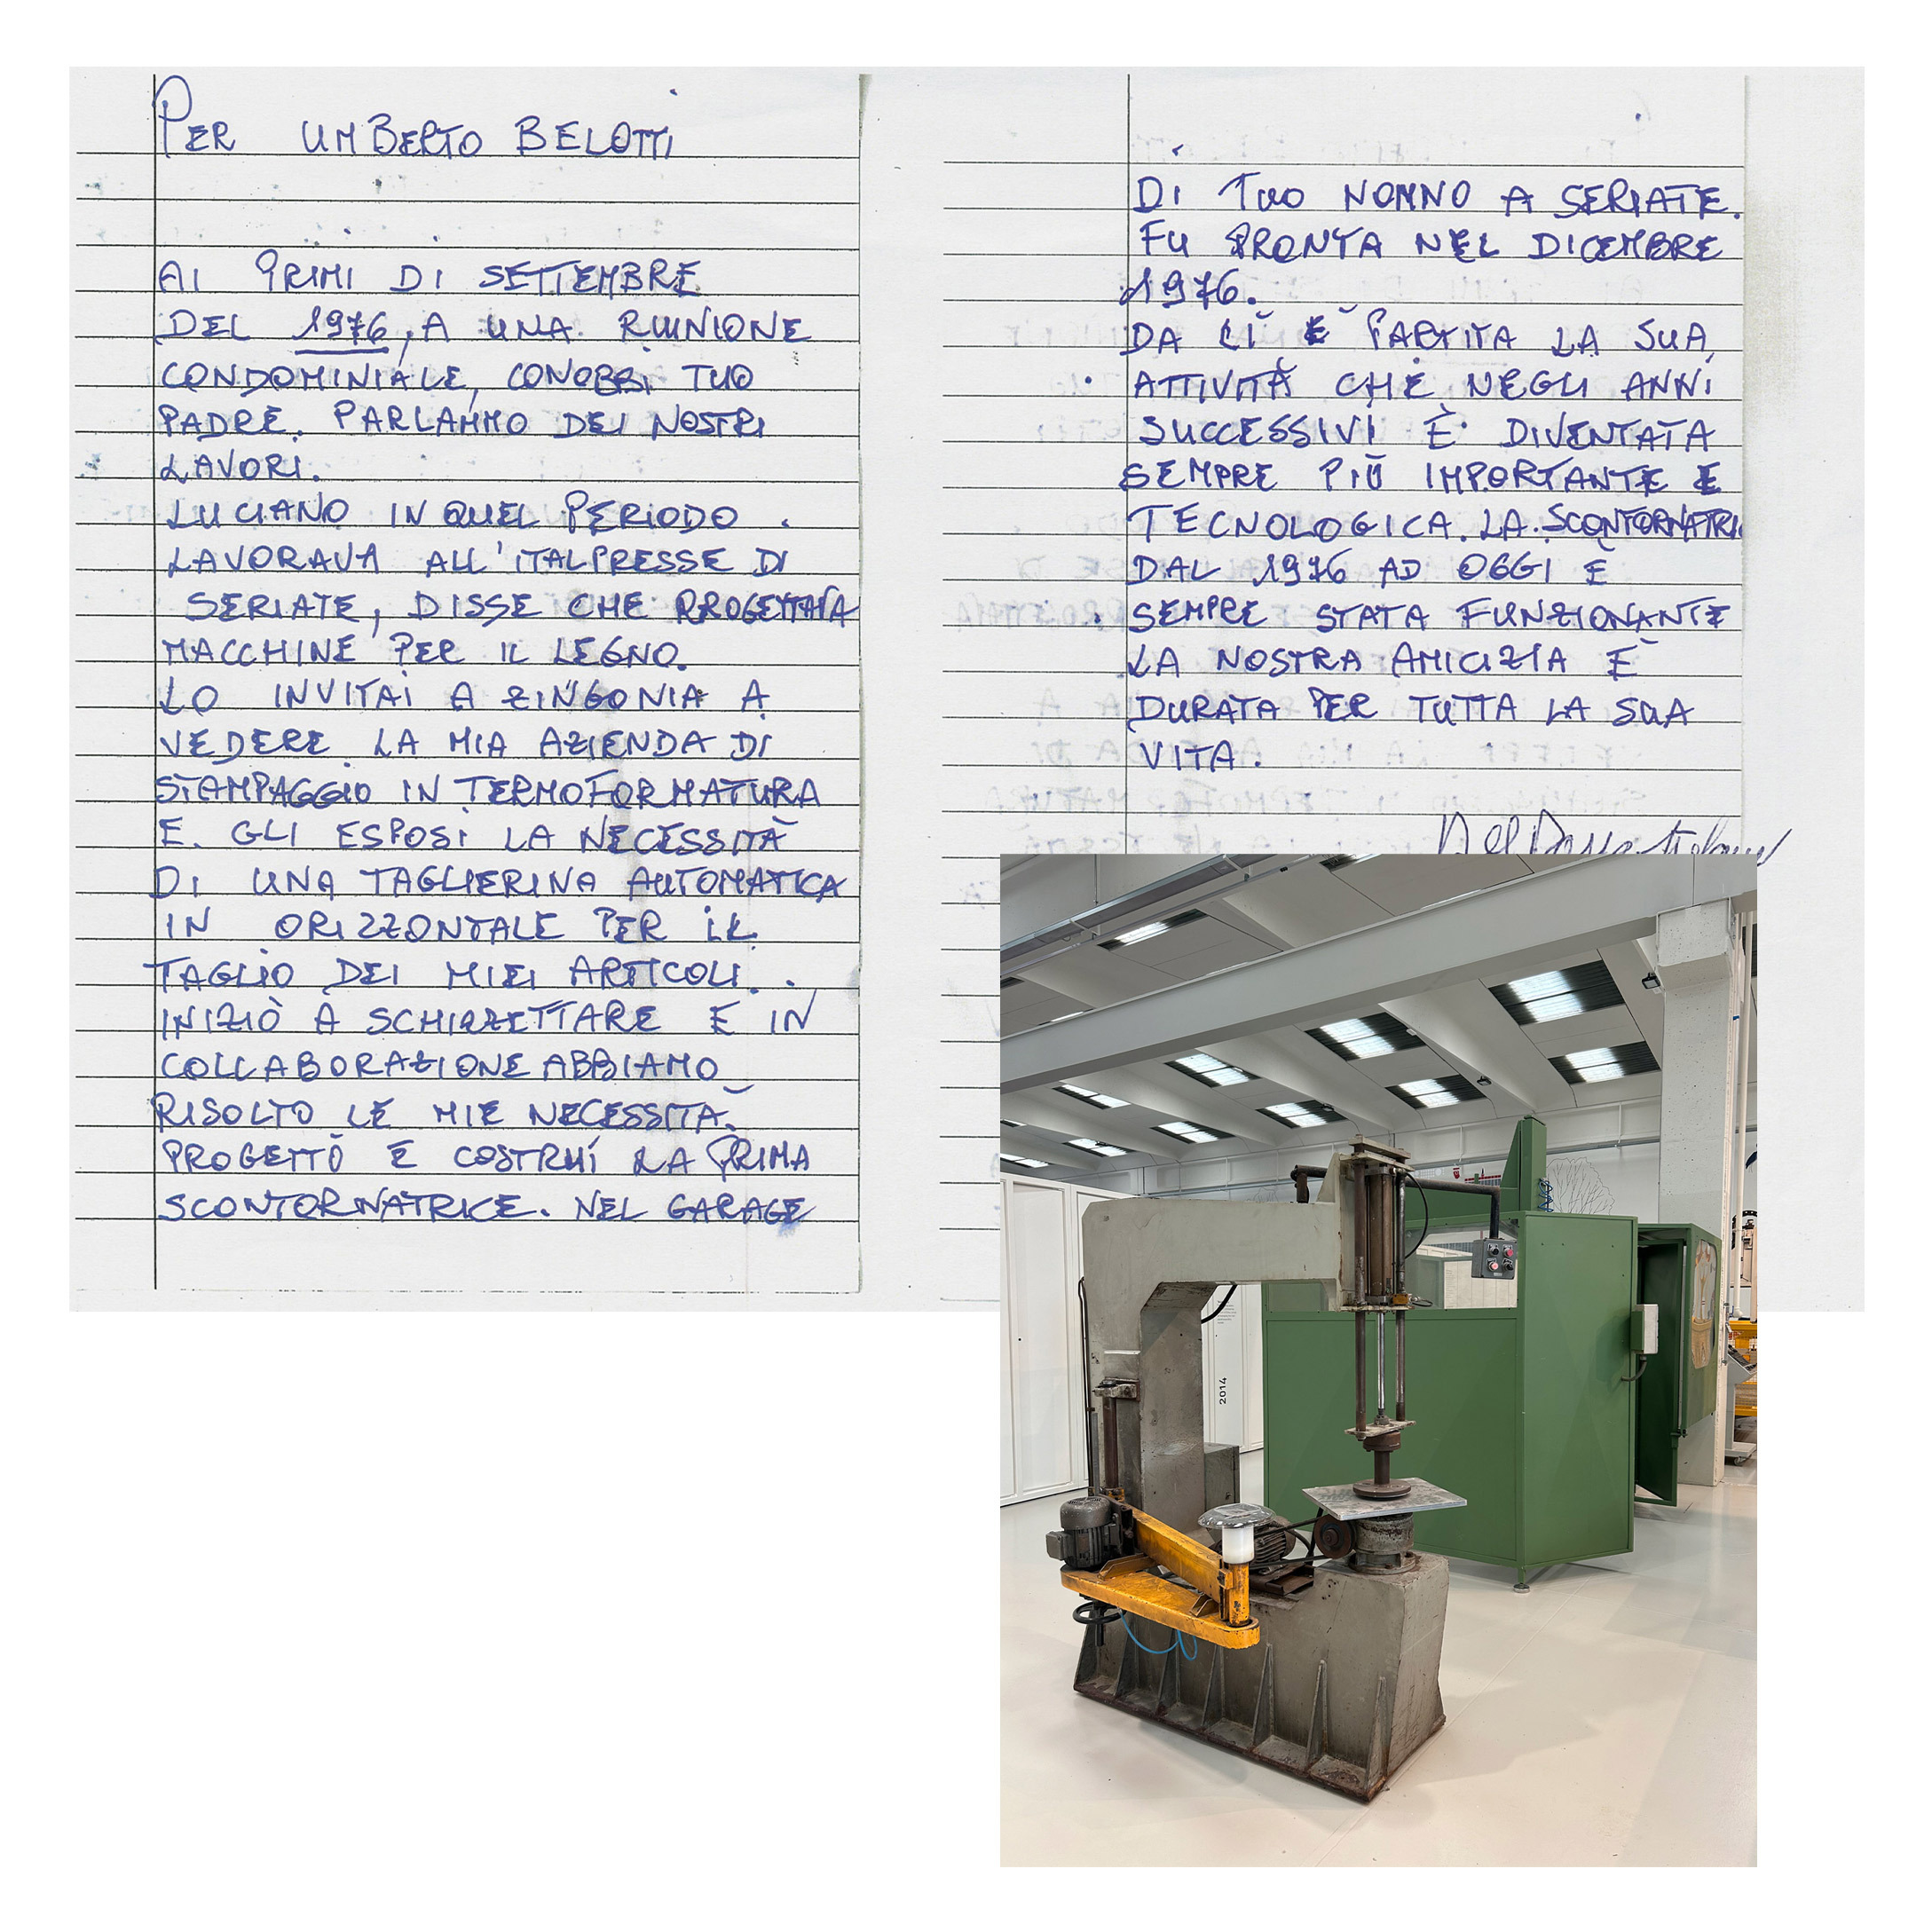 PER UMBERTO BELOTTI
AI PRIMI DI SETTEMBRE
DEL 1976, A UNA RIUNIONE
CONDOMINIALE, CONOBBI TUO
PADRE. PARLAMMO DEI NOSTRI
LAVORI.
LUCIANO IN QUEL PERIODO
LAVORAVA ALL'ITALPRESSE DI
SERIATE, DISSE CHE PROGETTAVA
MACCHINE PER IL LEGNO.
LO INVITAI A ZINGONIA A
VEDERE LA MIA AZIENDA DI
STAMPAGGIO IN TERMOFORMATURA
E GLI ESPOSI LA NECESSITÀ
DI UNA TAGLIERINA AUTOMATICA
IN ORIZZONTALE PER IL
TAGLIO DEI MIEI ARTICOLI.
INIZIÒ A SCHIZZETTARE E IN
COLLABORAZIONE ABBIAMO
RISOLTO LE MIE NECESSITÀ.
PROGETTÒ E COSTRUÌ LA PRIMA
SCONTORNATRICE. NEL GARAGE
DI TUO NONNO A SERIATE.
FU PRONTA NEL DICEMBRE
1976.
DA LÌ È PARTITA LA SUA
ATTIVITÀ CHE NEGLI ANNI
SUCCESSIVI È DIVENTATA
SEMPRE PIÙ IMPORTANTE E
TECNOLOGICA. LA SCONTORNATRI
DAL 1976 AD OGGI È
SEMPRE STATA FUNZIONANTE
LA NOSTRA AMICIZIA È
DURATA PER TUTTA LA SUA
VITA.
2014